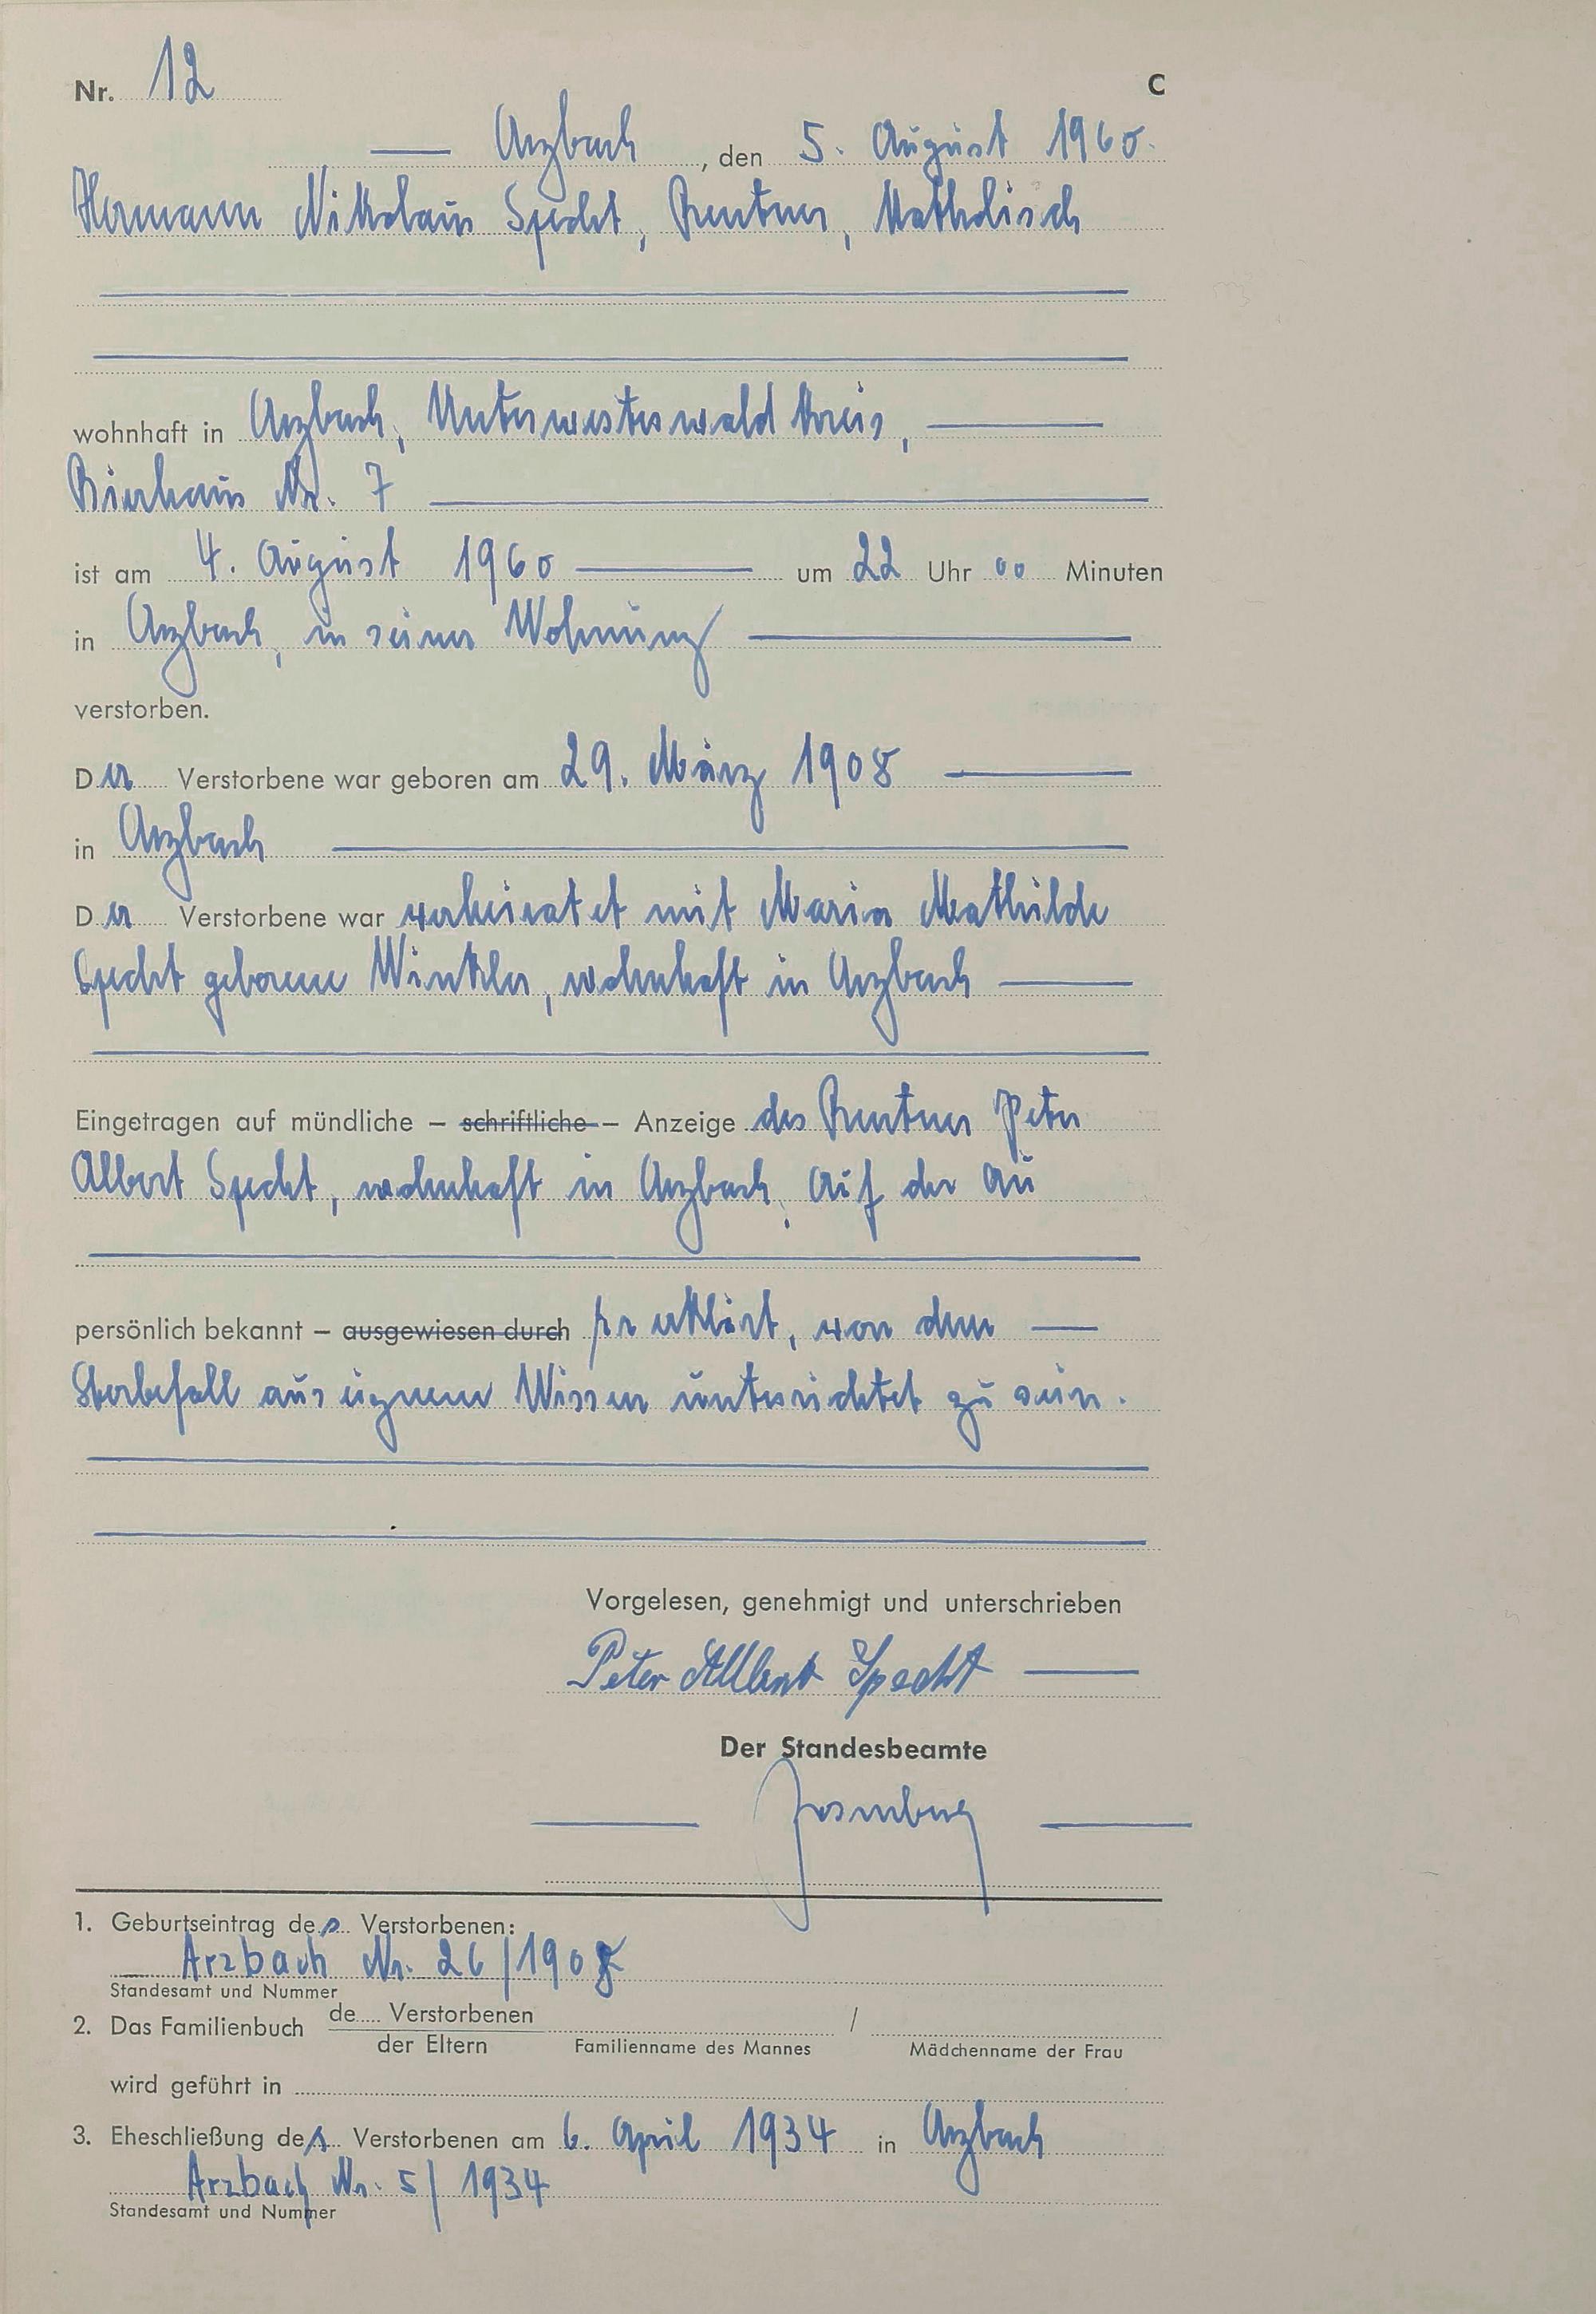 Nr. 12 C
Arzbach, den 5. August 1960.
Hermann Nikolaus Specht, Rentner, Katholisch
wohnhaft in Arzbach, Unterwesterwaldkreis,
Bierhaus Nr. 7
ist am 4. August 1960 um 22 Uhr 00 Minuten
in Arzbach, in seiner Wohnung
verstorben.
Der Verstorbene war geboren am 29. März 1908
in Arzbach
Der Verstorbene war verheiratet mit Maria Mathilde
Specht geborene Winkler, wohnhaft in Arzbach
Eingetragen auf mündliche – schriftliche – Anzeige des Rentner Peter
Albert Specht, wohnhaft in Arzbach, Auf der Au
persönlich bekannt – ausgewiesen durch er erklärt, von dem
Sterbefall aus eigenem Wissen unterrichtet zu sein.
Vorgelesen, genehmigt und unterschrieben
Peter Albert Specht
Der Standesbeamte
1. Geburtseintrag des Verstorbenen:
Arzbach Nr. 26/1908
Standesamt und Nummer
2. Das Familienbuch de..... Verstorbenen /
der Eltern Familienname des Mannes Mädchenname der Frau
wird geführt in
3. Eheschließung des Verstorbenen am 6. April 1934 in Arzbach
Arzbach Nr. 5/1934
Standesamt und Nummer